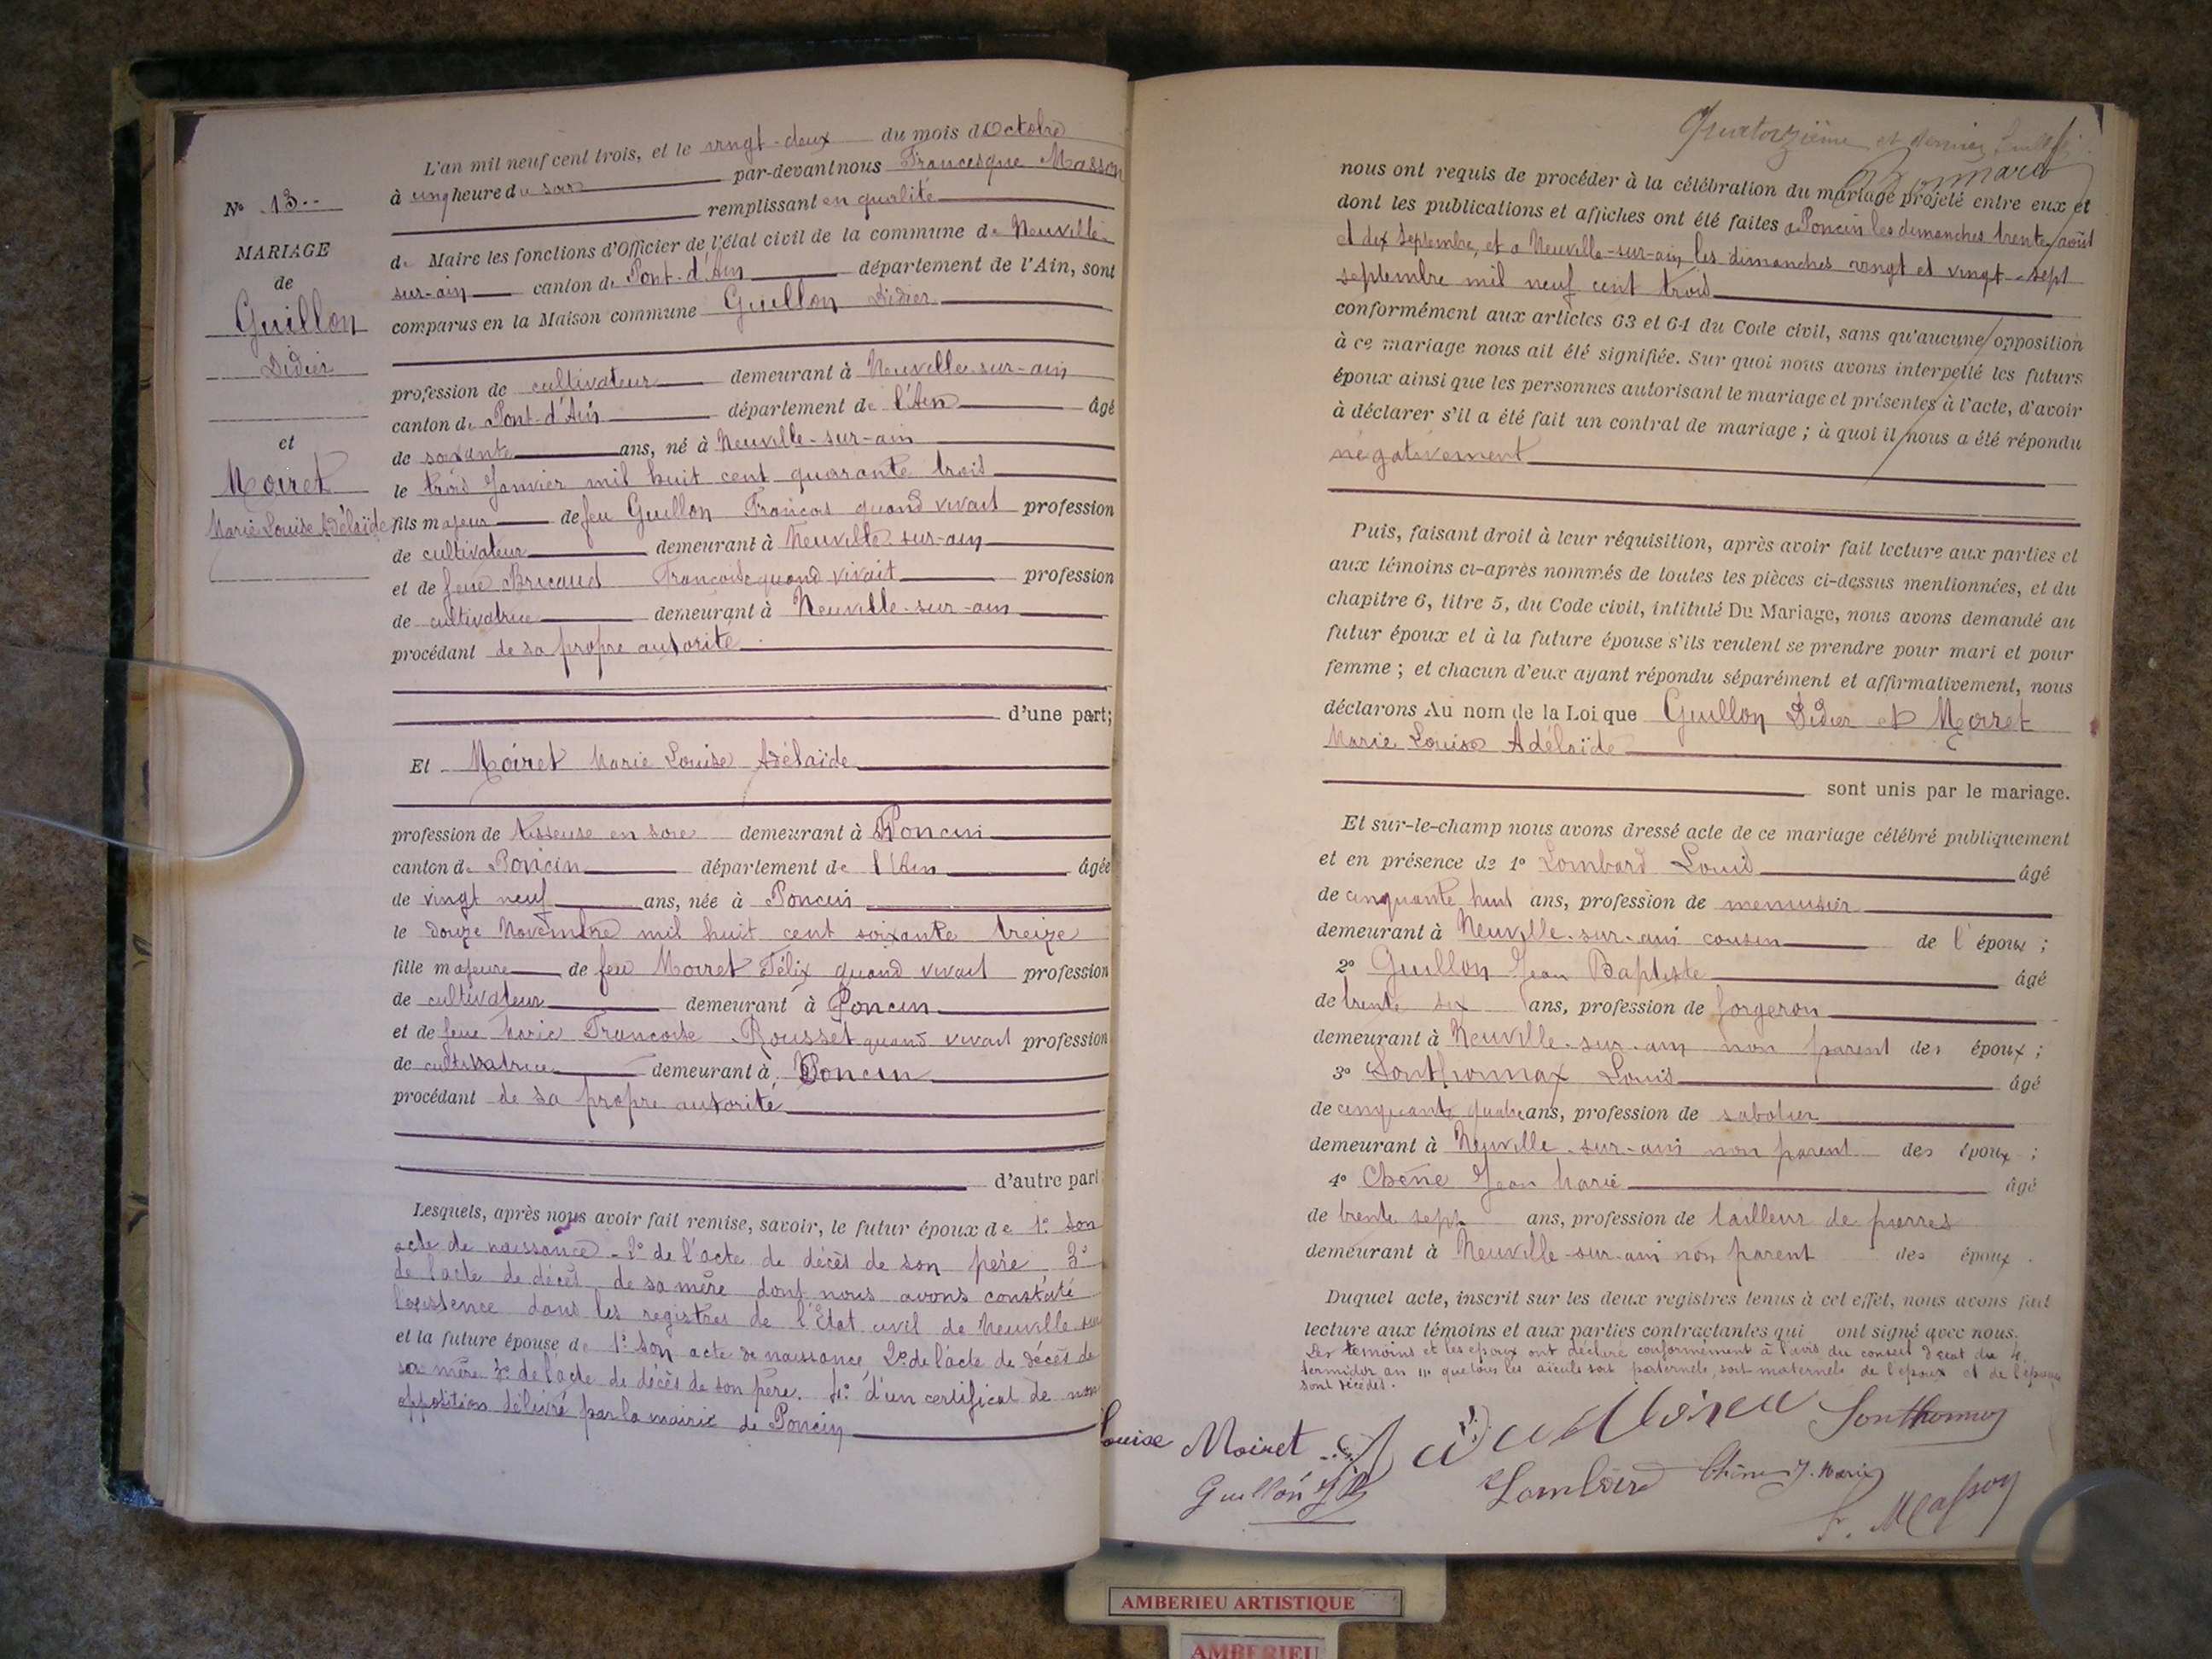 N° 13
MARIAGE
de
Guillon
Didier
et
Moiret
Marie Louise Adélaïde
L'an mil neuf cent trois, et le vingt-deux du mois d'Octobre
à cinq heure du soir par-devant nous Francesque Masson
remplissant en qualité
de Maire les fonctions d'Officier de l'état civil de la commune de Neuville-
sur-ain canton de Pont-d'Ain département de l'Ain, sont
comparus en la Maison commune Guillon Didier
profession de cultivateur demeurant à Neuville-sur-ain
canton de Pont-d'Ain département de l'Ain âgé
de soixante ans, né à Neuville-sur-ain
le trois Janvier mil huit cent quarante trois
fils majeur de feu Guillon François quand vivait profession
de cultivateur demeurant à Neuville-sur-ain
et de feue Bricaud Francoise quand vivait profession
de cultivatrice demeurant à Neuville-sur-ain
procédant de sa propre autorité
d'une part;
Et Moiret Marie Louise Adélaïde
profession de tisseuse en soie demeurant à Poncin
canton de Poncin département de l'Ain âgée
de vingt neuf ans, née à Poncin
le douze Novembre mil huit cent soixante treize
fille majeure de feu Moiret Félix quand vivait profession
de cultivateur demeurant à Poncin
et de feue Marie Francoise Rousset quand vivait profession
de cultivatrice demeurant à Poncin
procédant de sa propre autorité
d'autre part
Lesquels, après nous avoir fait remise, savoir, le futur époux de 1° son
acte de naissance - 2° de l'acte de décès de son père 3°
de l'acte de décès de sa mère dont nous avons constaté
l'existence dans les registres de l'Etat civil de Neuville sur
et la future épouse de 1° son acte de naissance 2° de l'acte de décès de
sa mère 3° de l'acte de décès de son père. 4° d'un certificat de non
opposition délivré par la mairie de Poncin
Quatorzième et dernier feuillet
nous ont requis de procéder à la célébration du mariage projeté entre eux et
dont les publications et affiches ont été faites à Poncin les dimanches trente août
et dix septembre, et à Neuville-sur-ain les dimanches vingt et vingt-sept
septembre mil neuf cent trois
conformément aux articles 63 et 64 du Code civil, sans qu'aucune opposition
à ce mariage nous ait été signifiée. Sur quoi nous avons interpellé les futurs
époux ainsi que les personnes autorisant le mariage et présentes à l'acte, d'avoir
à déclarer s'il a été fait un contrat de mariage; à quoi il nous a été répondu
négativement
Puis, faisant droit à leur réquisition, après avoir fait lecture aux parties et
aux témoins ci-après nommés de toutes les pièces ci-dessus mentionnées, et du
chapitre 6, titre 5, du Code civil, intitulé Du Mariage, nous avons demandé au
futur époux et à la future épouse s'ils veulent se prendre pour mari et pour
femme; et chacun d'eux ayant répondu séparément et affirmativement, nous
déclarons Au nom de la Loi que Guillon Didier et Moiret
Marie Louise Adélaïde
sont unis par le mariage.
Et sur-le-champ nous avons dressé acte de ce mariage célébré publiquement
et en présence de 1° Lombard Louis âgé
de cinquante huit ans, profession de menuisier
demeurant à Neuville-sur-ain cousin de l'époux;
2° Guillon Jean Baptiste âgé
de trente six ans, profession de forgeron
demeurant à Neuville-sur-ain non parent des époux;
3° Sonthonnax Louis âgé
de cinquante quatre ans, profession de sabotier
demeurant à Neuville-sur-ain non parent des époux;
4° Chêne Jean Marie âgé
de trente sept ans, profession de tailleur de pierres
demeurant à Neuville-sur-ain non parent des époux.
Duquel acte, inscrit sur les deux registres tenus à cet effet, nous avons fait
lecture aux témoins et aux parties contractantes qui ont signé avec nous.
Les témoins et les époux ont déclaré conformément à l'avis du conseil d'état du 4
termidor an que tous les aïeuls soit paternels, soit maternels de l'époux et de l'épouse
sont décédés.
Louise Moiret
Sonthonnax
Guillon
Lombard
Chêne J. Marie
F. Masson
AMBERIEU ARTISTIQUE
AMBERIEU